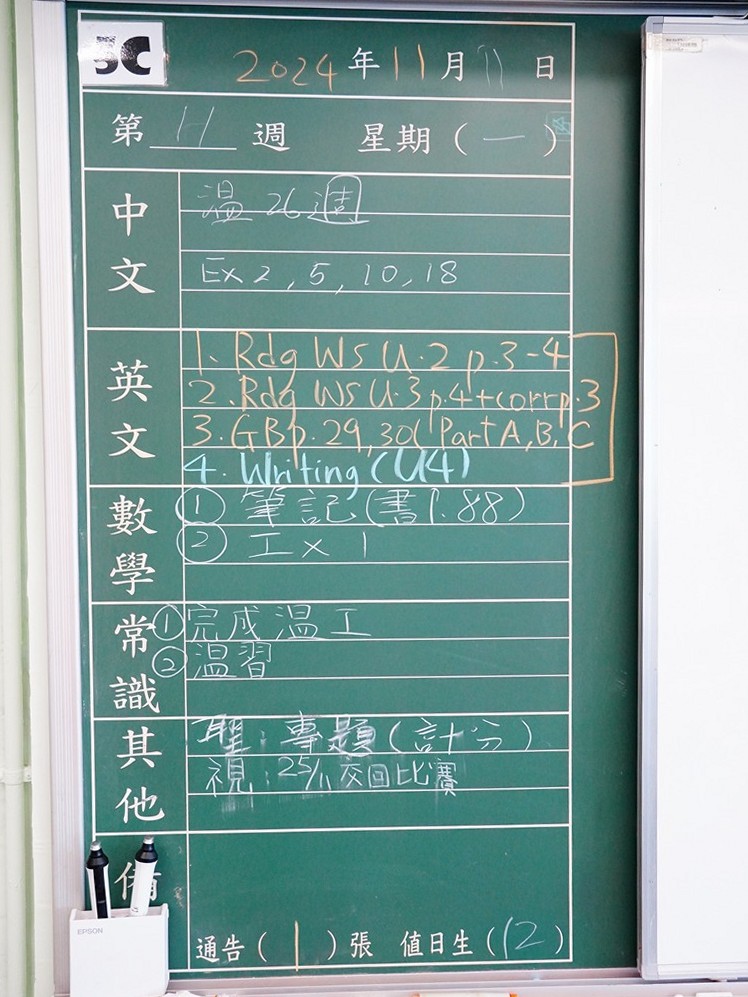 5C
2024年11月11日
第 11 週 星期(一)
中文
温26週
Ex 2, 5, 10, 18
英文
1. Rdg WS U.2 p.3-4
2. Rdg WS U.3 p.4+corr p.3
3. GB p.29,30( Part A, B, C
4. Writing (U4)
數學
① 筆記(書P.88)
② 工x1
常識
① 完成温工
② 温習
其他
聖:專題(計分)
視:25/11 交回比賽
備
EPSON
通告(1)張 值日生(12)